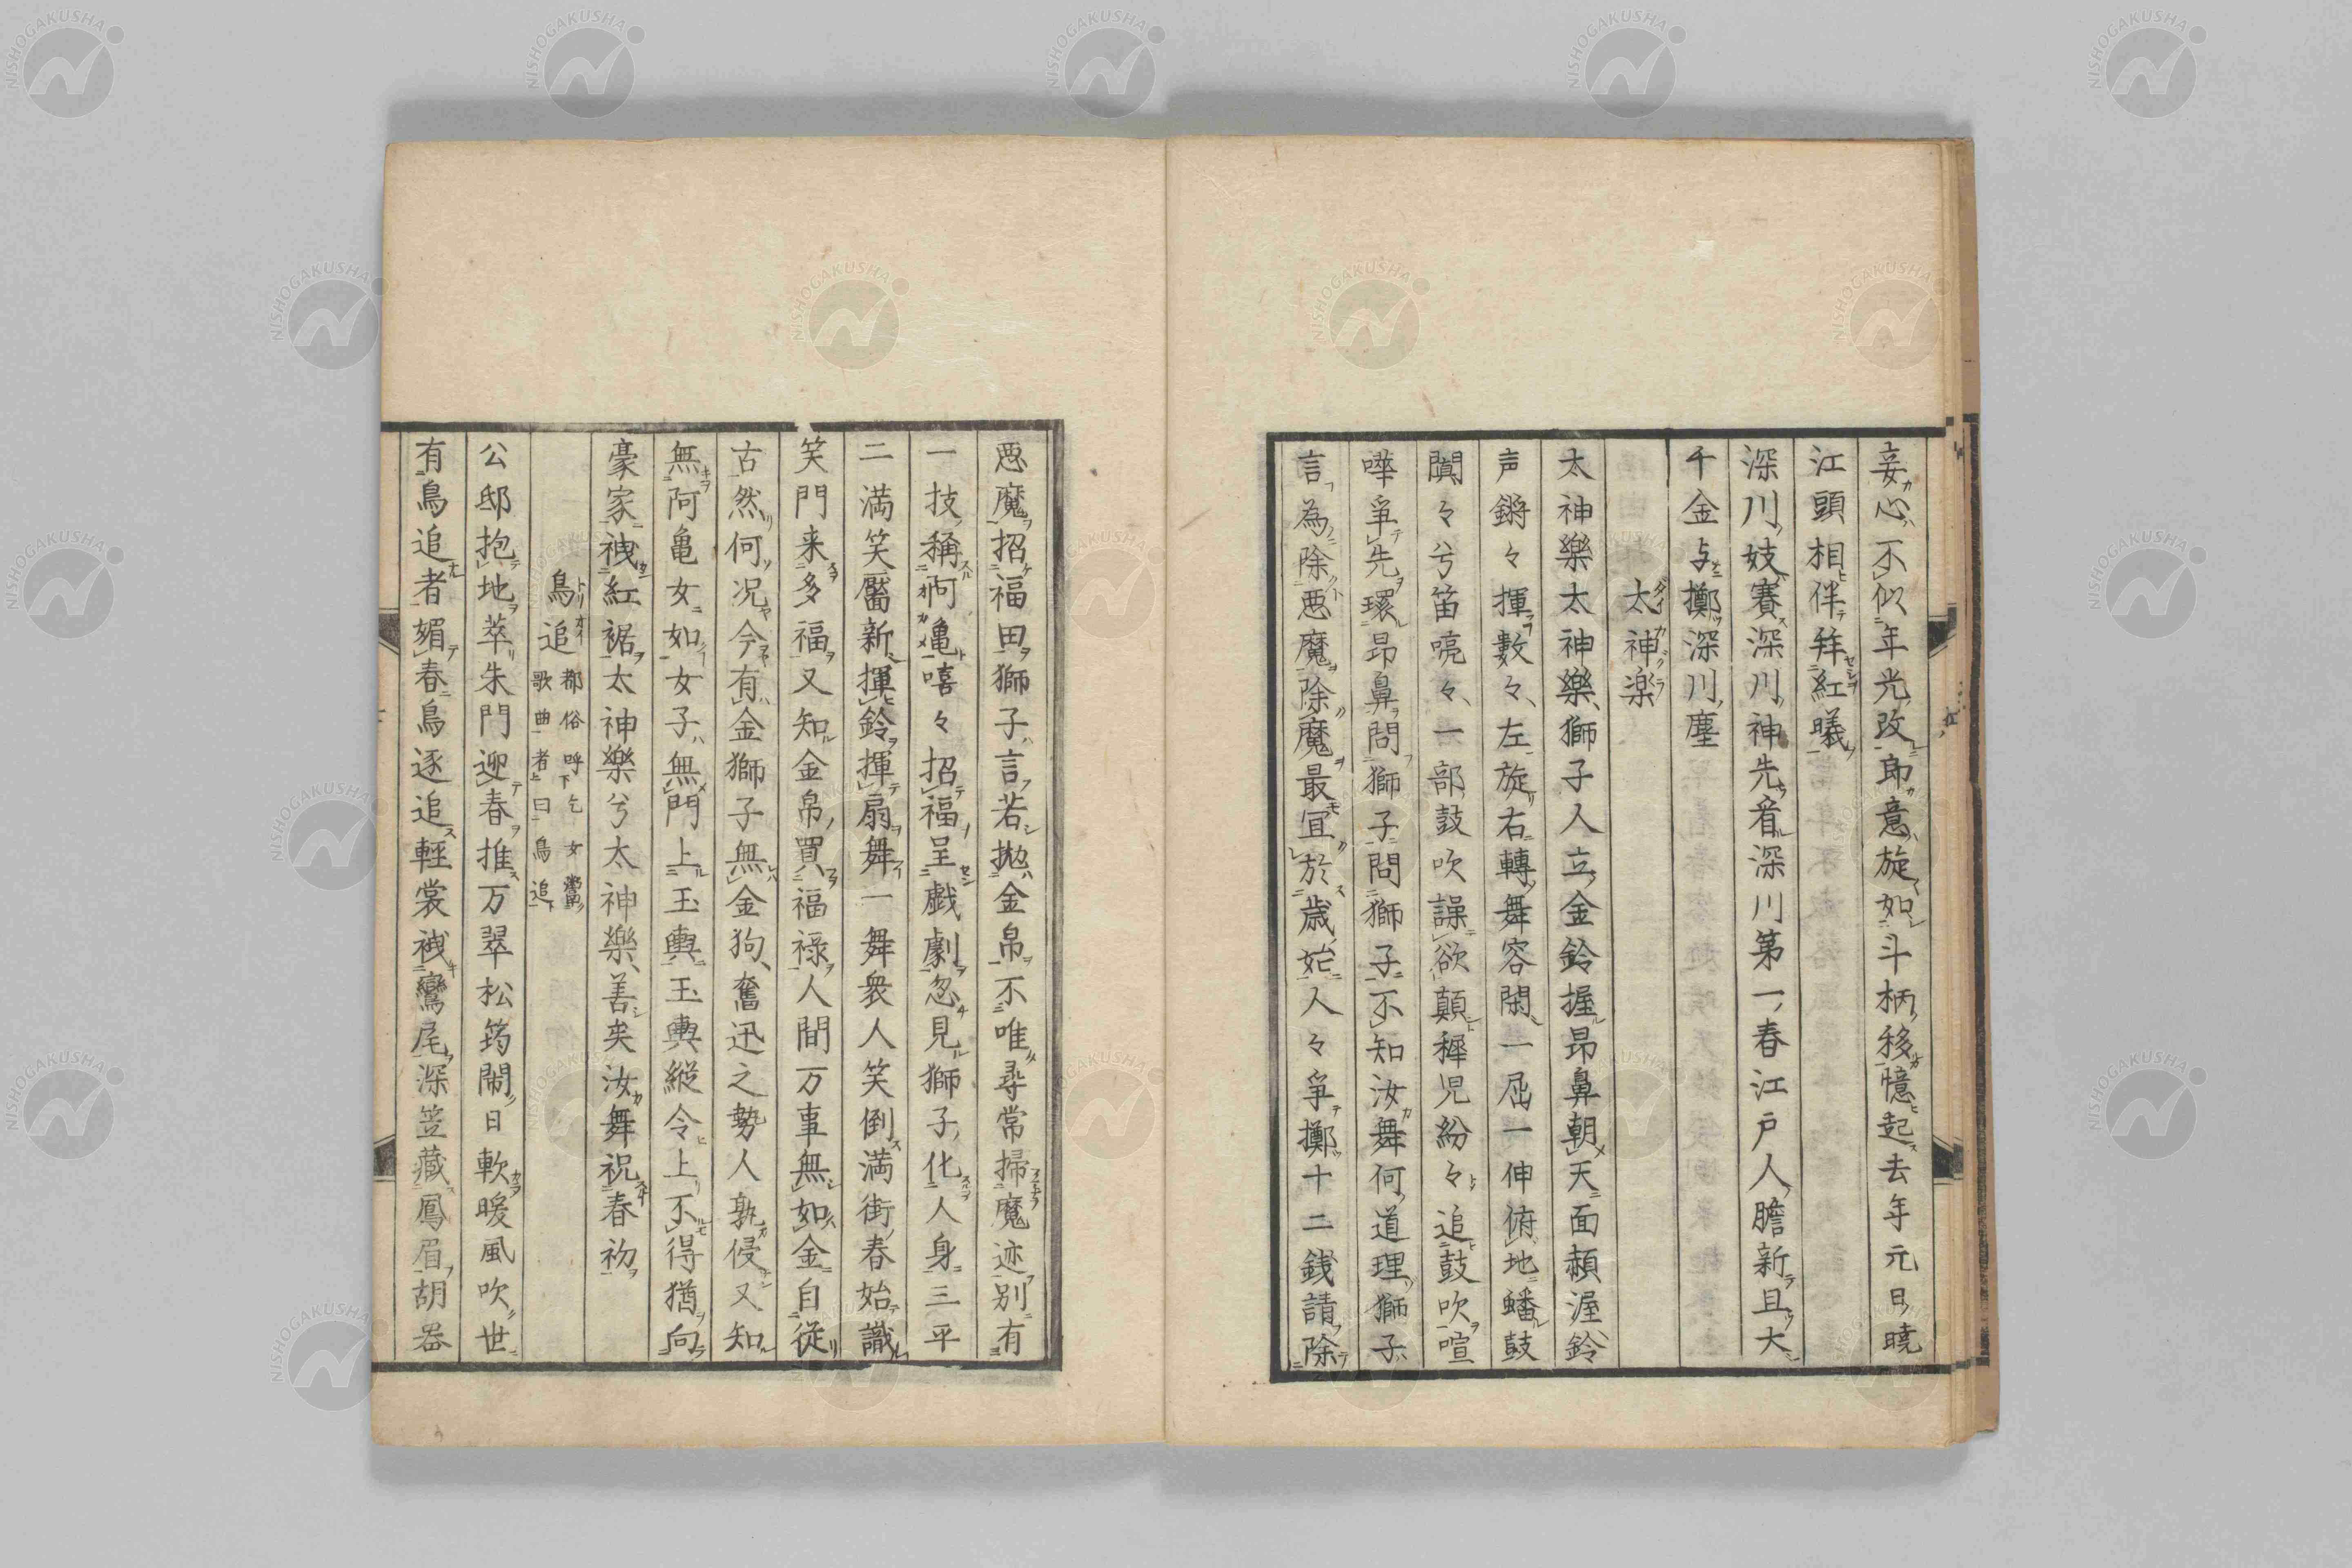 妾心不似年光改郎意旋如斗柄移憶起去年元日曉
江頭相伴拜紅曦
深川妓賽深川神先看深川第一春江戸人膽新且大
千金与擲深川塵
太神楽
太神樂太神樂獅子人立金鈴握昂鼻朝天面頳渥鈴
声鏘々揮數々左旋右轉舞容閑一屈一伸俯地蟠鼓
闐々兮笛喨々一部鼓吹譟欲顛穉児紛々追鼓吹喧
嘩爭先環昂鼻問獅子問獅子不知汝舞何道理獅子
言為除悪魔除魔最宜於歳始人々爭擲十二銭請除
悪魔招福田獅子言若拋金帛不唯尋常掃魔迹別有
一技稱阿亀嘻々招福呈戯劇忽見獅子化人身三平
二満笑靨新揮鈴揮扇舞一舞衆人笑倒満街春始識
笑門来多福又知金帛買福禄人間万事無如金自従
古然何況今有金獅子無金狗奮迅之勢人孰侵又知
無阿亀女如女子無門上玉輿玉輿縦令上不得猶向
豪家拽紅裾太神樂兮太神樂善矣汝舞祝春初
鳥追 都俗呼乞女黨
歌曲者曰鳥追
公邸抱地萃朱門迎春推万翠松筠閙日軟暖風吹世
有鳥追者媚春鳥逐追輕裳拽鸞尾深笠蔵鳳眉胡器
NISHOGAKUSHA